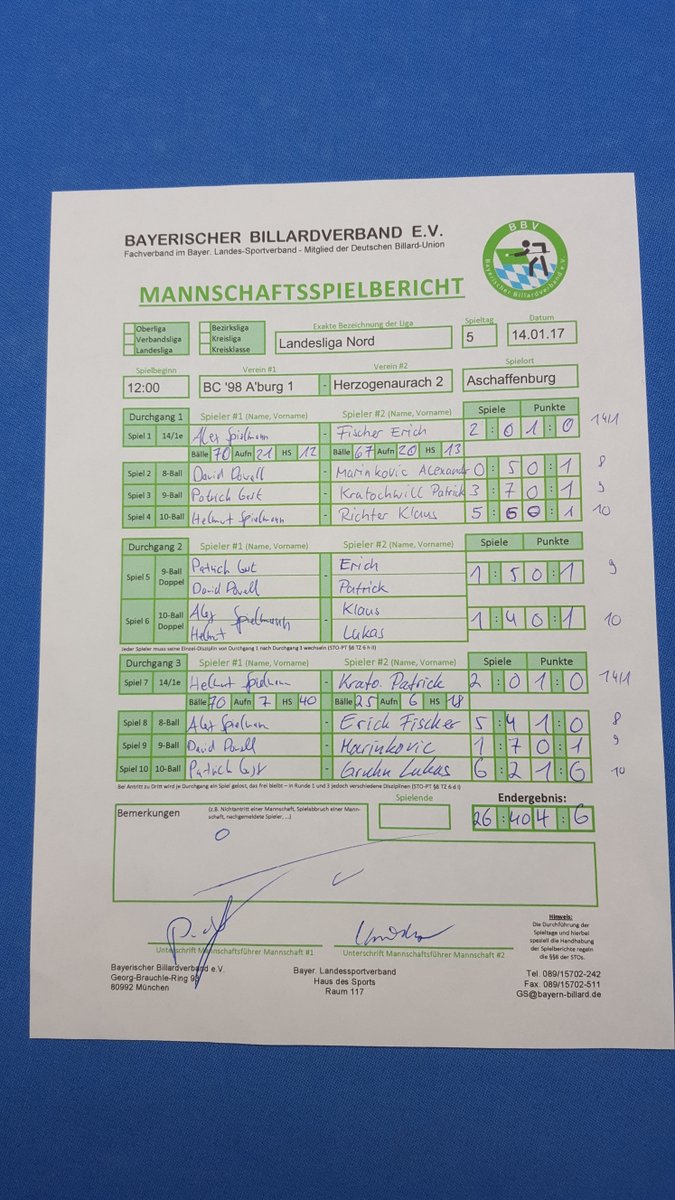 BAYERISCHER BILLARDVERBAND E.V.
Fachverband im Bayer. Landes-Sportverband - Mitglied der Deutschen Billard-Union
BBV
Bayerischer Billardverband e.V.
MANNSCHAFTSSPIELBERICHT
Oberliga Bezirksliga Exakte Bezeichnung der Liga Spieltag Datum
Verbandsliga Kreisliga Landesliga Nord 5 14.01.17
Landesliga Kreisklasse
Spielbeginn Verein #1 Verein #2 Spielort
12:00 BC '98 A'burg 1 - Herzogenaurach 2 Aschaffenburg
Durchgang 1 Spieler #1 (Name, Vorname) Spieler #2 (Name, Vorname) Spiele Punkte
Spiel 1 14/1e Alex Spielmann - Fischer Erich 2 : 0 1 : 0 14/1
Bälle 70 Aufn 21 HS 12 Bälle 67 Aufn 20 HS 13
Spiel 2 8-Ball David Powell - Marinkovic Alexander 0 : 5 0 : 1 8
Spiel 3 9-Ball Patrick Gest - Kratochwill Patrick 3 : 7 0 : 1 9
Spiel 4 10-Ball Helmut Spielmann - Richter Klaus 5 : 6 0 : 1 10
Durchgang 2 Spieler #1 (Name, Vorname) Spieler #2 (Name, Vorname) Spiele Punkte
Spiel 5 9-Ball Doppel Patrick Gest - Erich 1 : 5 0 : 1 9
David Powell Patrick
Spiel 6 10-Ball Doppel Alex Spielmann - Klaus 1 : 4 0 : 1 10
Helmut Lukas
Jeder Spieler muss seine Einzel-Disziplin von Durchgang 1 nach Durchgang 3 wechseln (STO-PT §8 TZ 6 h II)
Durchgang 3 Spieler #1 (Name, Vorname) Spieler #2 (Name, Vorname) Spiele Punkte
Spiel 7 14/1e Helmut Spielmann - Krato. Patrick 2 : 0 1 : 0 14/1
Bälle 70 Aufn 7 HS 40 Bälle 25 Aufn 6 HS 18
Spiel 8 8-Ball Alex Spielmann - Erich Fischer 5 : 4 1 : 0 8
Spiel 9 9-Ball David Powell - Marinkovic 1 : 7 0 : 1 9
Spiel 10 10-Ball Patrick Gest - Gruhn Lukas 6 : 2 1 : 0 10
Bei Antritt zu Dritt wird je Durchgang ein Spiel gelost, das frei bleibt – in Runde 1 und 3 jedoch verschiedene Disziplinen (STO-PT §8 TZ 6 d I)
Bemerkungen (z.B. Nichtantritt einer Mannschaft, Spielabbruch einer Mannschaft, nachgemeldete Spieler, ...) Spielende Endergebnis:
26 : 40 4 : 6
Unterschrift Mannschaftsführer Mannschaft #1 Unterschrift Mannschaftsführer Mannschaft #2
Hinweis:
Die Durchführung der
Spieltage und hierbei
speziell die Handhabung
der Spielberichte regeln
die §§8 der STOs.
Bayerischer Billardverband e.V. Bayer. Landessportverband Tel. 089/15702-242
Georg-Brauchle-Ring 93 Haus des Sports Fax. 089/15702-511
80992 München Raum 117 GS@bayern-billard.de